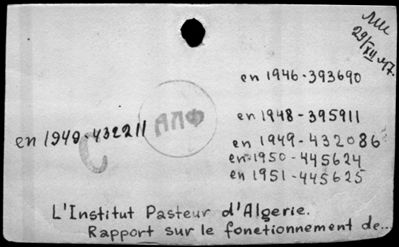 29/XII 47.
en 1946-393690
en 1948-395911
en 1949-432211
ААФ
en 1949-432086
en 1950-445624
en 1951-445625
C
L'Institut Pasteur d'Algerie.
Rapport sur le fonetionnement de...